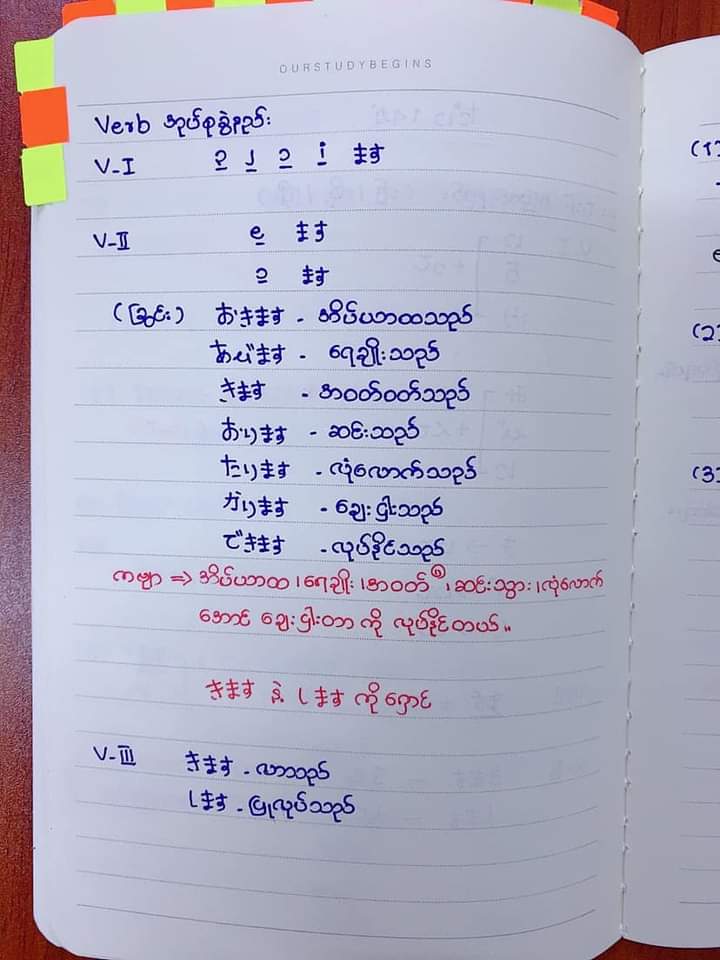 OURSTUDYBEGINS
Verb အုပ်စုခွဲနည်း
V-I ၃ ၂ ၁ i ます
V-II e ます
၁ ます
(ခြွင်း) おきます - အိပ်ယာထသည်
あびます - ရေချိုးသည်
きます - အဝတ်ဝတ်သည်
おります - ဆင်းသည်
たります - လုံလောက်သည်
かります - ချေးငှါးသည်
できます - လုပ်နိုင်သည်
ကဗျာ ⇒ အိပ်ယာထ ၊ရေချိုး ၊အဝတ် ၊ဆင်းသွား ၊လုံလောက်
အောင် ချေးငှါးတာ ကို လုပ်နိုင်တယ်။
きます နဲ့ します ကိုရှောင်
V-III きます - လာသည်
します - ပြုလုပ်သည်
(1)
(2)
(3)